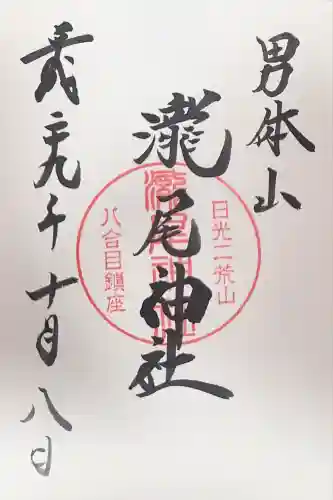 男体山
瀧尾神社
日光二荒山
瀧尾神社
八合目鎮座
十月八日